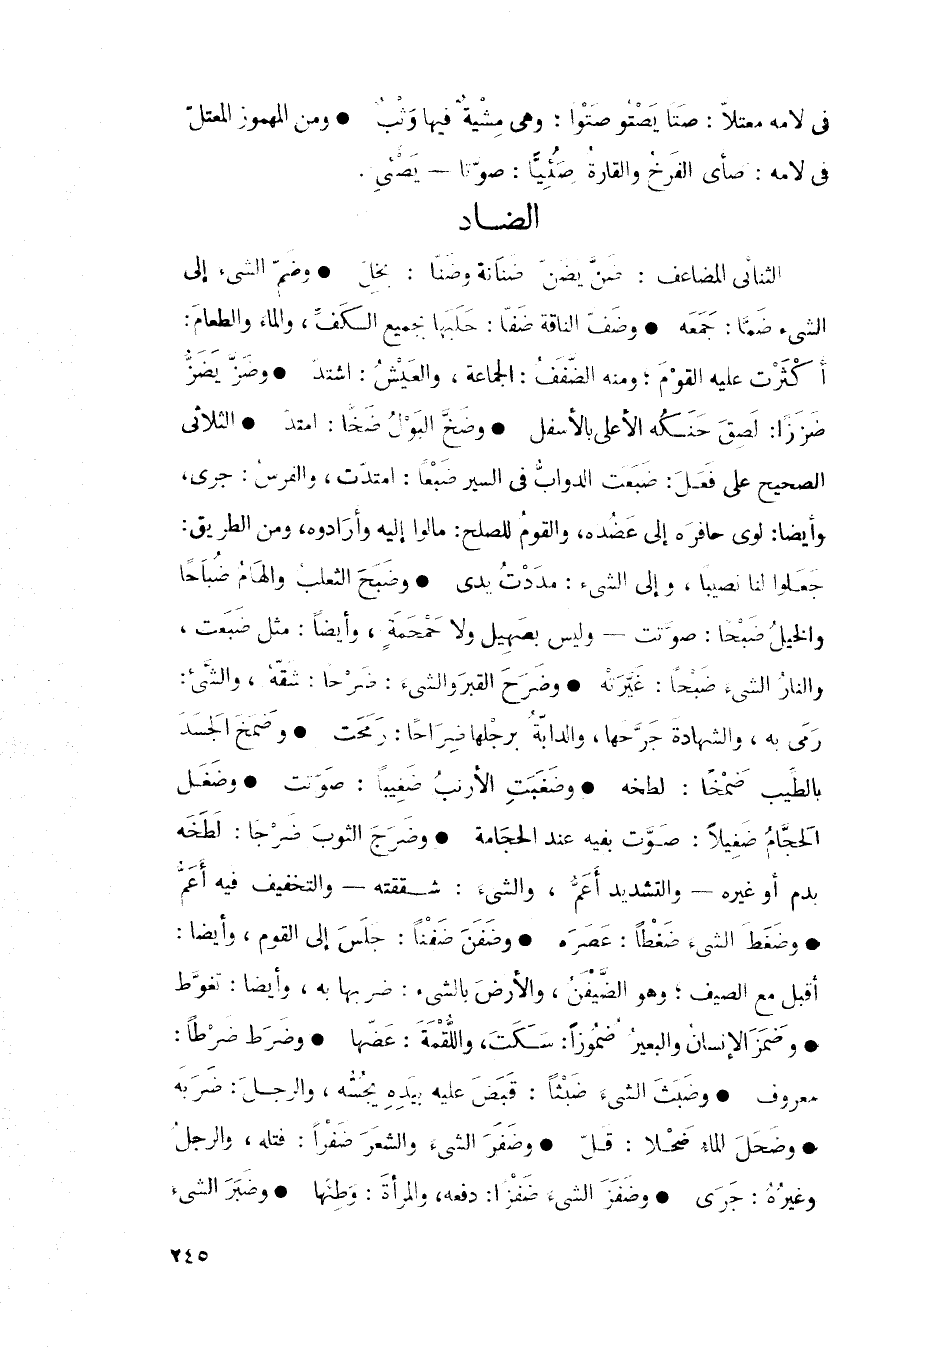 فى لامه معتلاًّ : صتَا يَصْتُو صتْواً : وهى مِشْيةٌ فيها وَثْبٌ ● ومن المهموز المعتلّ
فى لامه : صأى الفَرْخُ والفارةُ صَئِيًّا : صوّتا — يَصْئِى .
الضـاد
الثنائى المضاعف : ضَنَّ يضَنّ ضَنَانة وضَنًّا : بخِلَ ● وضَمّ الشىء إلى
الشىء ضَمًّا : جَمَعَه ● وضَفّ الناقة ضَفًّا : حَلَبَها بجميع الكَفِّ ، والماءَ والطعامَ :
أكْثَرْت عليه القوْمَ ؛ ومنه الضَّفَفُ : الجماعة ، والعَيْشُ : اشتدّ ● وضَزَّ يَضَزُّ
ضَزَزًا : لَصِقَ حَنَكُه الأعلى بالأسفل ● وضَخَّ البَوْلُ ضَخًّا : امتدّ ● الثلاثى
الصحيح على فَعَلَ : ضبَعَت الدوابُّ فى السير ضَبْعًا : امتدّت ، والفرسُ : جرى ،
وأيضا : لوى حافرَه إلى عَضُده ، والقومُ للصلح : مالوا إليه وأرَادوه ، ومن الطريق :
جَعَلوا لنا نصيبا ، وإلى الشىء : مدَدْتُ يدى ● وضَبَحَ الثعلبُ والهَامُ ضُبَاحًا
والخيلُ ضَبْحًا : صوّتت — وليس بصَهِيل ولا حَمْحَمَةٍ ، وأيضاً : مثل ضبَعت ،
والنارُ الشىءَ ضَبْحاً : غَيَّرَتْه ● وضَرَحَ القبرَ والشىءَ : ضَرْحًا : شقّه ، والشئَ :
رَمَى به ، والشهادةَ جَرَّحها ، والدابّةُ برِجْلها ضِرَاحًا : رَمَحَت ● وضَمَخَ الجَسَدَ
بالطِّيب ضَمْخًا : لطخه ● وضَغَبَتِ الأرنبُ ضَغِيباً : صَوّتت ● وضَغَل
الحجَّامُ ضَغِيلاً : صوَّت بفيه عند الحجَامة ● وضَرَجَ الثوبَ ضَرْجًا : لَطَخَه
بدم أو غيره — والتشديد أَعَمُّ ، والشىءَ : شققته — والتخفيف فيه أَعَمُّ
● وضَغَطَ الشىءَ ضَغْطاً : عَصَرَه ● وضَفَنَ ضَفْنًا : جلَسَ إلى القوم ، وأيضا :
أقبل مع الضيف ؛ وهو الضَّيْفَنُ ، والأرضَ بالشىء : ضربها به ، وأيضا : تغوَّط
● وضَمَزَ الإنسانُ والبعيرُ ضُمُوزاً : سَكَتَ ، واللُّقْمَةَ : عَضّها ● وضَرَط ضَرْطاً :
معروف ● وضَبَثَ الشىءَ ضَبْثاً : قَبَضَ عليه بيَدِهِ يَجُسُّه ، والرجلَ : ضَرَبَه
● وضَحَلَ الماءُ ضَحْلا : قلّ ● وضَفَرَ الشىءَ والشعَرَ ضَفْراً : فتله ، والرجلُ
وغيرُهُ : جَرَى ● وضَفَزَ الشىءَ ضَفْزًا : دفعه ، والمرأةَ : وَطِئَها ● وضَبَرَ الشىءَ
٢٤٥